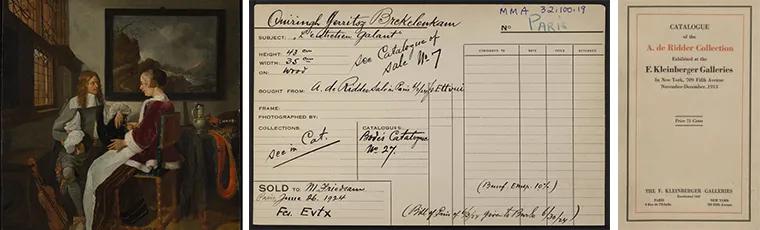 MMA 32.100.19
No PARIS
Quiringh Gerritsz Brekelenkam
SUBJECT: "L'Entretien Galant"
HEIGHT: 43 cm
WIDTH: 35 cm
ON: Wood
see Catalogue of
sale No 7
BOUGHT FROM: A. de Ridder sale in Paris
FRAME:
PHOTOGRAPHED BY:
COLLECTIONS:
see in Cat.
CATALOGUES:
Bode's Catalogue
No 27.
CONSIGNED TO DATE PRICE RETURNED
SOLD TO: M. Friedsam
Paris June 26. 1924
Fci. Evtx
(Benef. Emep. 10%)
(Bill of Paris of given to Burke 6/30/24)
CATALOGUE
of the
A. de Ridder Collection
Exhibited at the
F. Kleinberger Galleries
In New York, 709 Fifth Avenue
November-December, 1913
Price 75 Cents
THE F. KLEINBERGER GALLERIES
PARIS
NEW YORK
709 Fifth Ave.